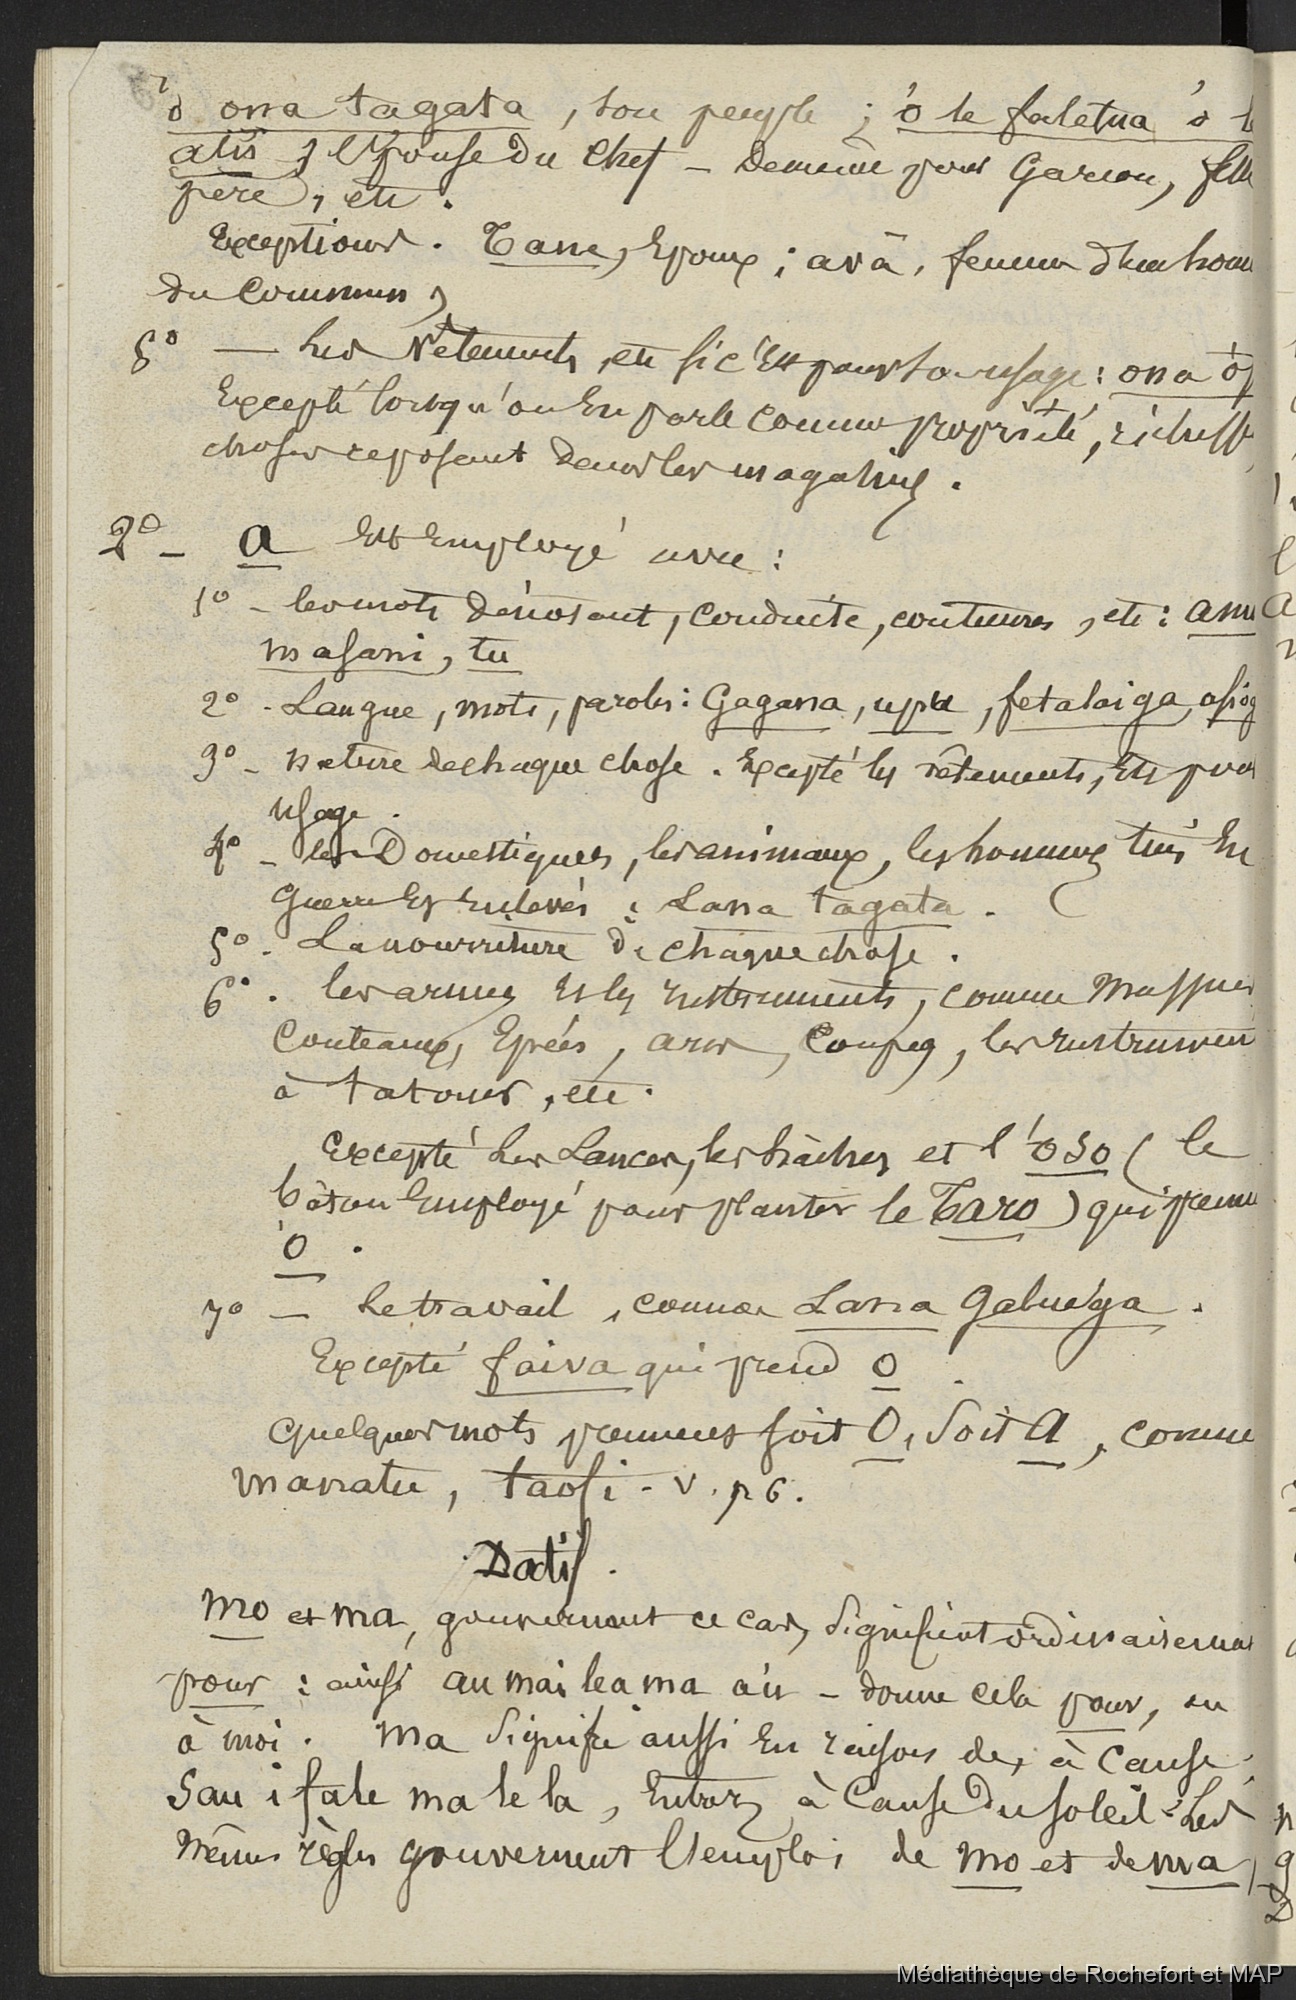 'o ona tagata, son peuple ; 'o le faletua 'o l
alii, l'Epouse du Chef – Demême pour Garcon, fille
père, etc.
Exceptions. Tane, Epoux ; avā, femme d'un hom
du Commun,
5° — Les Vêtements, etc si c'Est pour son usage : ona 'of
Excepté lorsqu'on En parle comme propriété, richess
choses reposant dans les magasins.
2° – a Est Employé avec :
1° – les mots dénotant, Conduite, coutumes, etc : amu
masani, tu
2° - Langue, mots, paroles : Gagana, upu, fetalaiga, afiog
3° – nature de chaque chose. Excepté les vêtements, etc pour
usage.
4° – les Domestiques, les animaux, les hommes tués En
Guerre Et Enlevés : Lana tagata.
5° - La nourriture de chaque chose.
6° . les armes Et les Instruments, comme Massues
Couteaux, Epées, arcs, Coupes, les Instrumen
à tatouer, etc.
Excepté Les Lances, les hâches et l'oso (le
bâton Employé pour planter le Taro) qui prenn
'o .
7° — Le travail, comme Lana Galuega.
Excepté faiva qui prend o.
Quelques mots prennent soit O, Soit A, comme
manatu, taofi - v. p 6.
Datif.
Mo et ma, gouvernant ce cas, Signifient ordinairement
pour : ainsi au mai lea ma a'u – donne cela pour, ou
à moi. Ma Signifie aussi En raison de, à Cause.
Sau i fale ma le la, Entrez à Cause du soleil. Les
Mêmes règles gouvernent l'emploi de mo et de ma,
Médiathèque de Rochefort et MAP